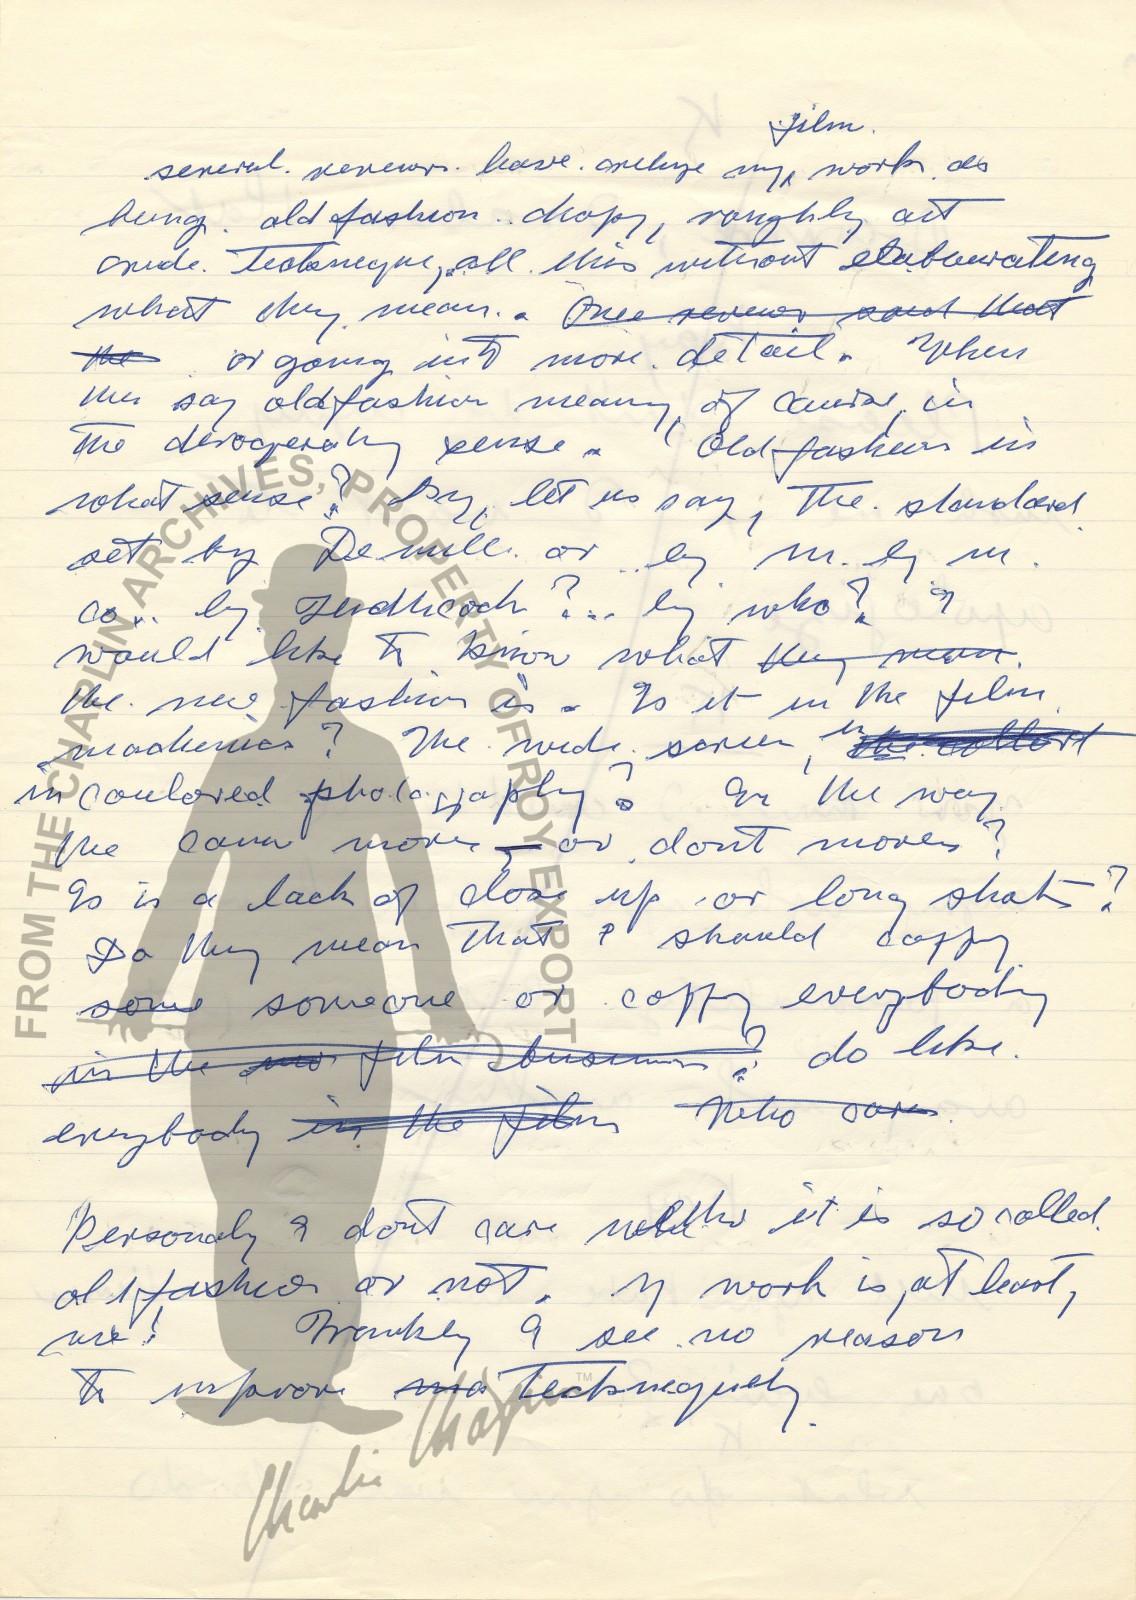 film.
several reviewrs have my work as
being old fashion choppy, roughly cut
crude Techneque, all this without elabourating
what they mean. One reviewr said that
the or going into more detail. When
they say old fashion meaning, of course, in
the derogeraty sense. Old fashion in
what sense? By, let us say, The standard
set by De mille or by m. g m.
co.. by Hidthcock?... by who? I
would like to know what they mean.
the new fashion is. Is it in the film
machenics? The wide screen, in the
in couloured photography? In the way
the camra moves — or dont moves?
Is is a lack of close up or long shots?
Do they mean that I should coppy
some someone or coppy everybody
in the film business? do like
everybody in the film who cares
Personaly I dont care wether it is so called
old fashion or not. My work is, at least,
me! Frankly I see no reason
to improve Technequely.
FROM THE CHAPLIN ARCHIVES, PROPERTY OF ROY EXPORT
Charlie Chaplin™